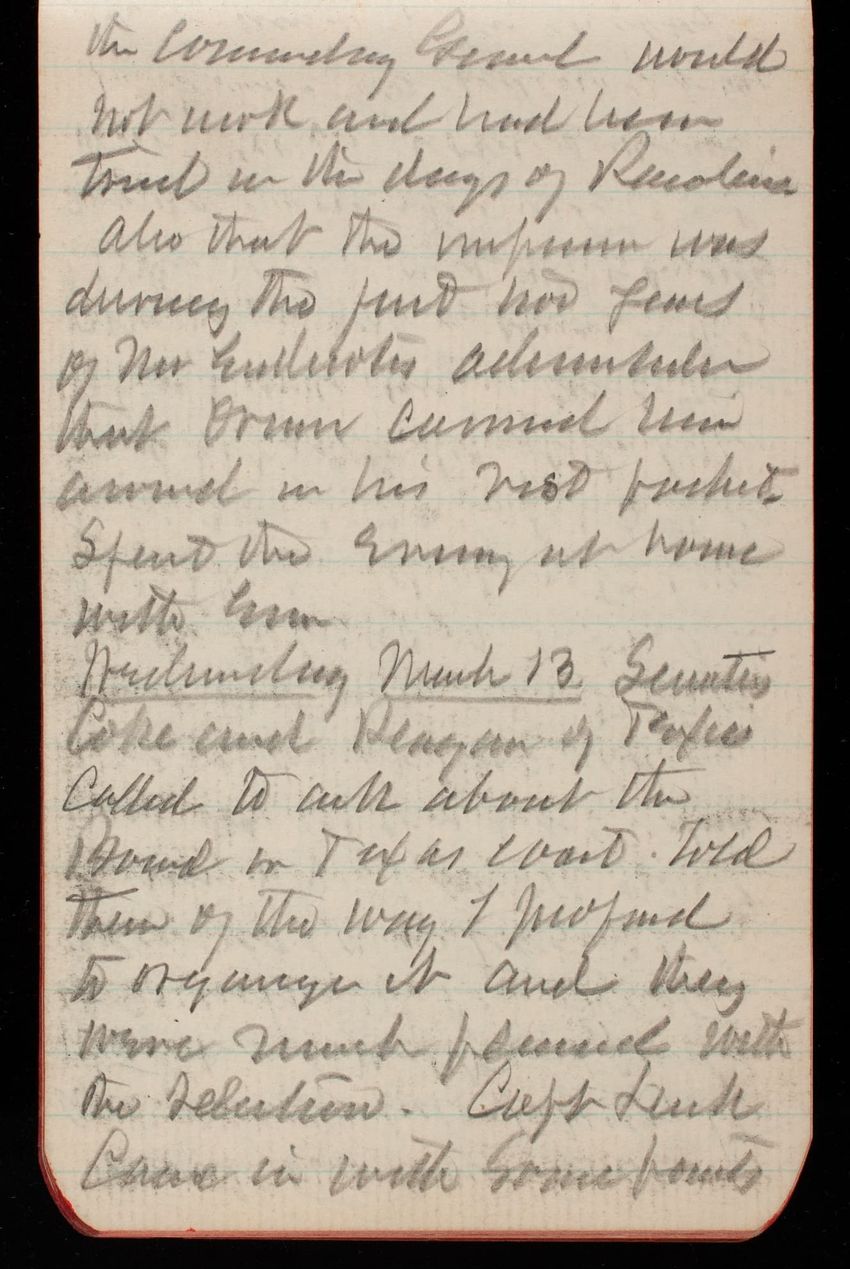 the Commanding General would
not work and had been
tried in the days of
also that the impression was
during the first two years
of Mr Endicotts
that Drum carried him
around in his vest pocket.
Spent the Evening at home
with
Wednesday March 13 Senators
Coke and Reagan of Texas
Called to ask about the
Board on Texas coast. Told
them of the way I proposed
to organize it and they
were much pleased with
the selection. Capt Lusk
Came in with some points